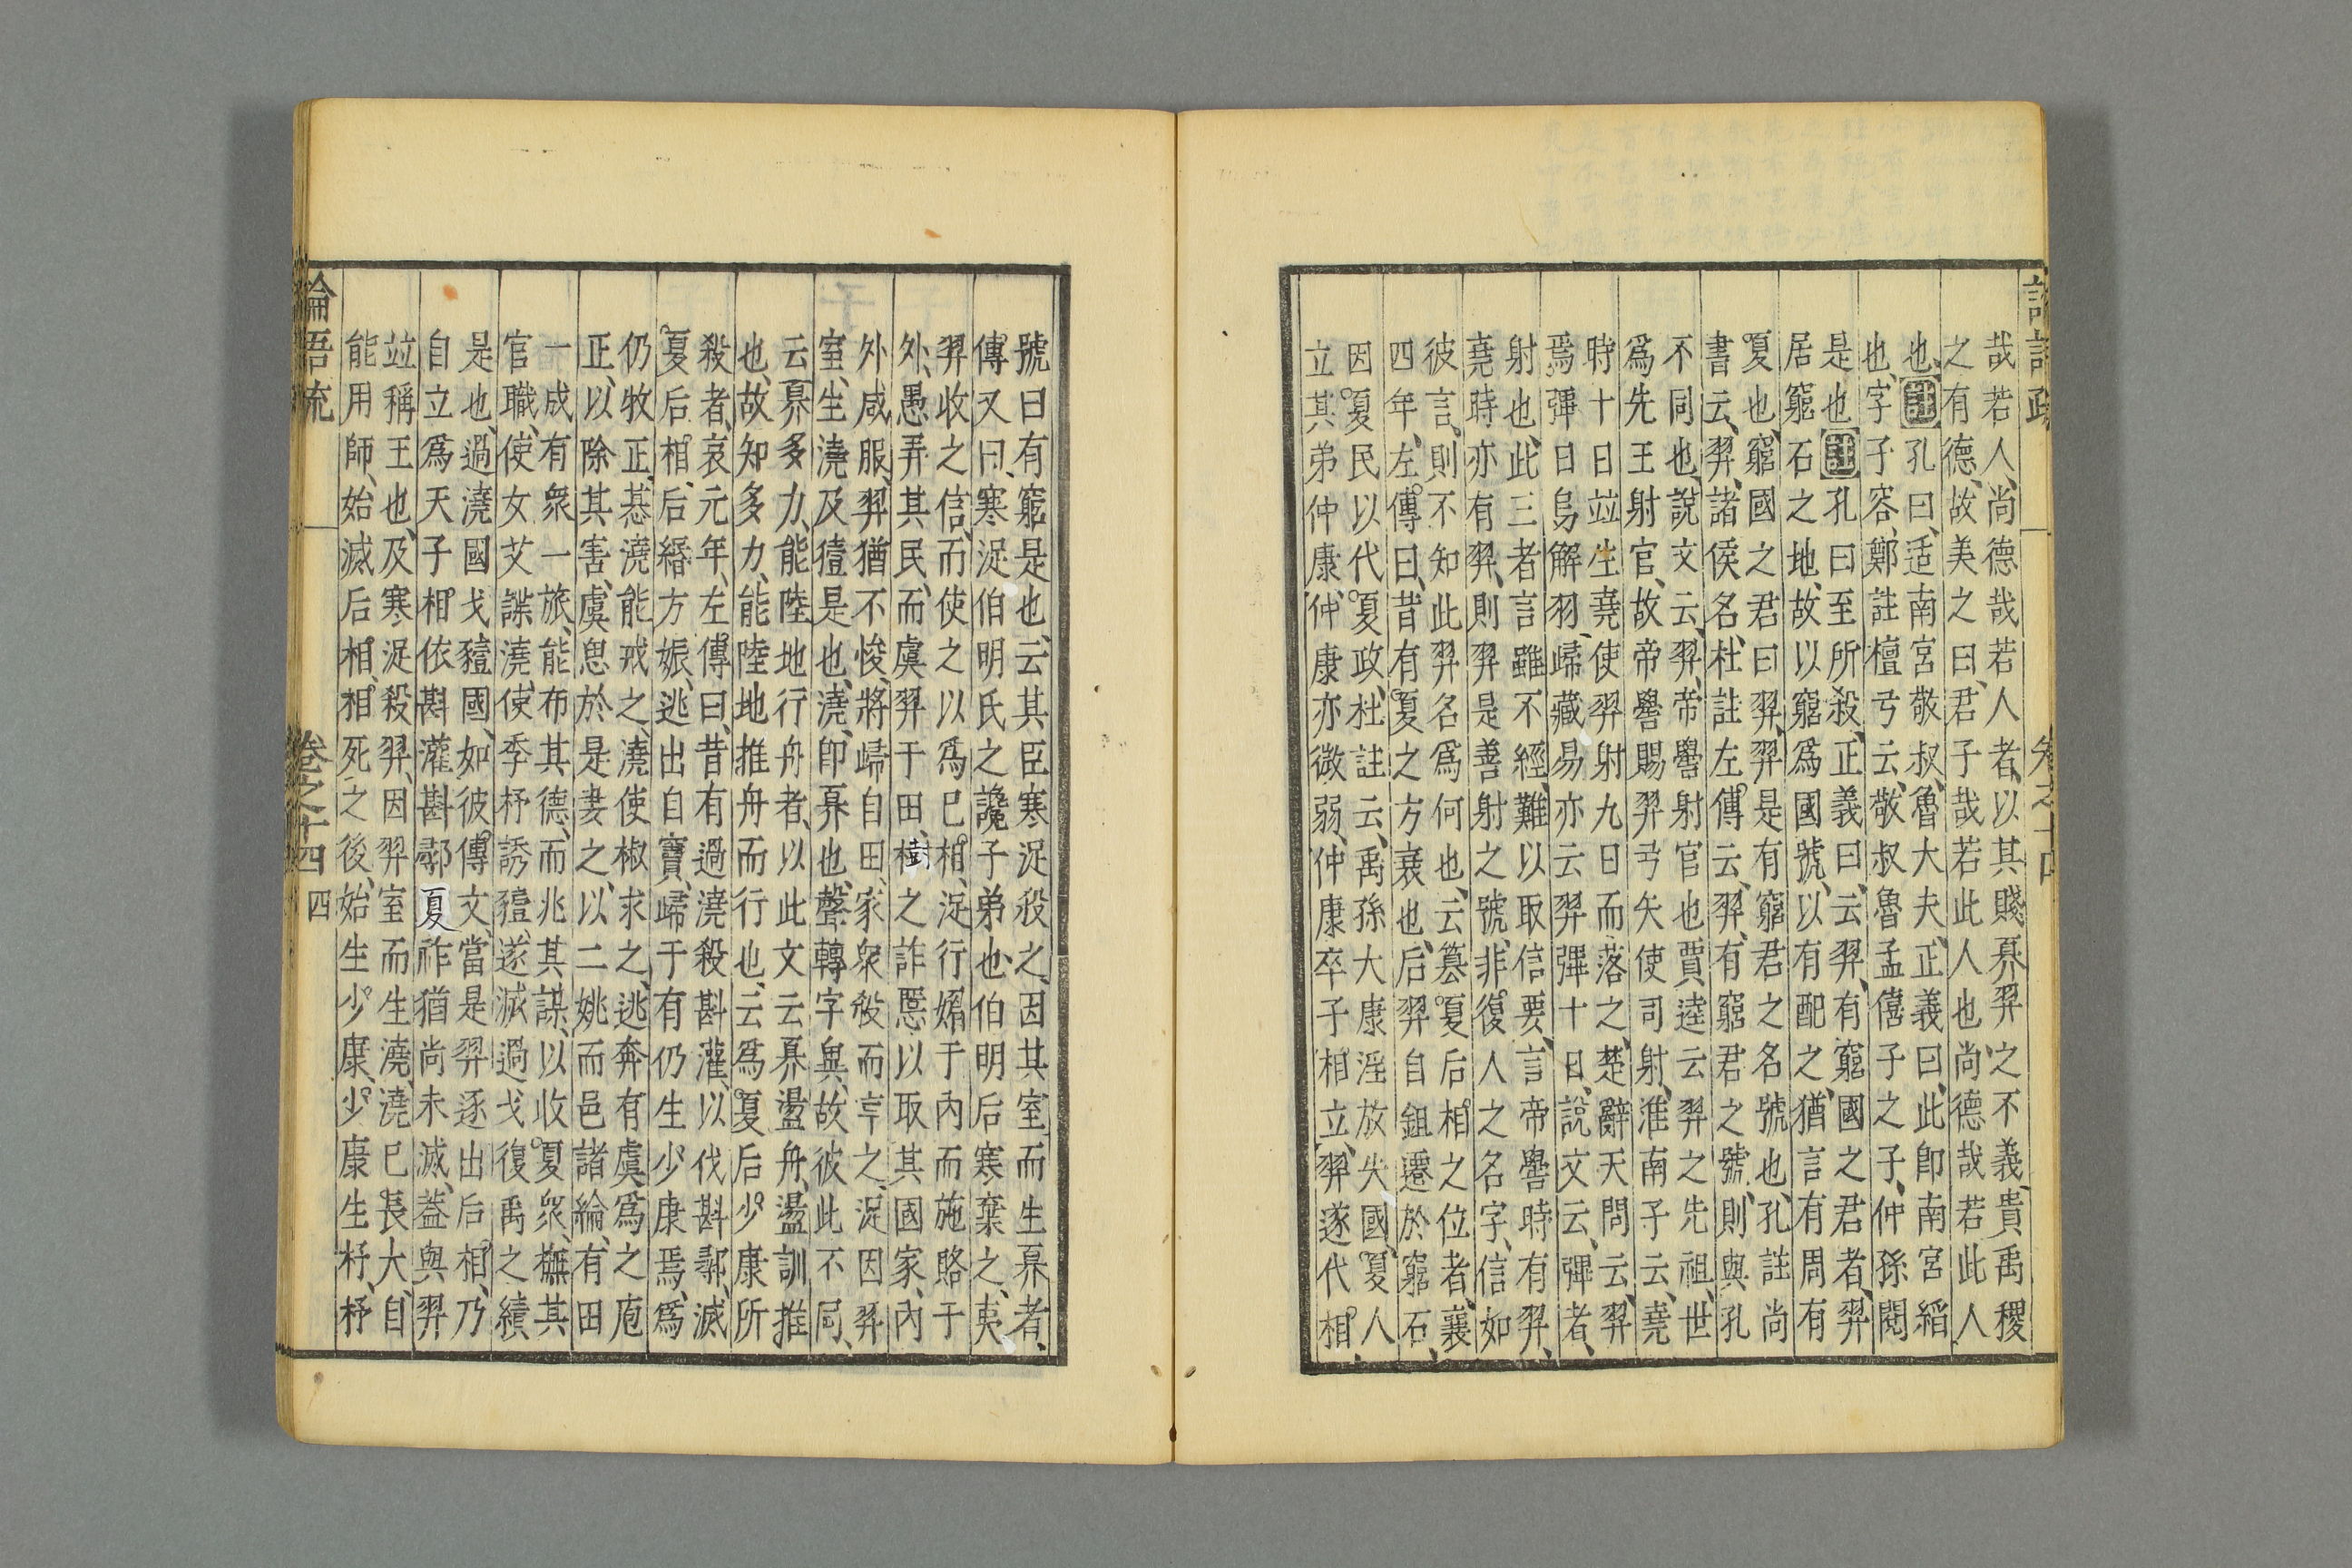 哉若人、尚德哉若人者、以其賤奡羿之不義、貴禹稷
之有德、故美之曰、君子哉若此人也、尚德哉若此人
也、註孔曰、适南宮敬叔、魯大夫、正義曰、此卽南宮縚
也、字子容、鄭註檀弓云、敬叔魯孟僖子之子、仲孫閱
是也、註孔曰至所殺、正義曰、云羿、有窮國之君者、羿
居窮石之地、故以窮爲國號、以有配之、猶言有周有
夏也、窮國之君曰羿、羿是有窮君之名號也、孔註尚
書云、羿、諸侯名、杜註左傳云、羿、有窮君之號、則與孔
不同也、說文云、羿、帝嚳射官也、賈逵云、羿之先祖、世
爲先王射官、故帝嚳賜羿弓矢使司射、淮南子云、堯
時十日竝生、堯使羿射九日而落之、楚辭天問云、羿
焉彃日烏解羽、歸藏易亦云、羿彃十日、說文云、彃者、
射也、此三者言雖不經、難以取信、要言帝嚳時有羿、
堯時亦有羿、則羿是善射之號、非復人之名字、信如
彼言、則不知此羿名爲何也、云簒夏后相之位者、襄
四年、左傳曰、昔有夏之方衰也、后羿自鉏遷於窮石、
因夏民以代夏政、杜註云、禹孫大康淫放失國、夏人
立其弟仲康、仲康亦微弱、仲康卒子相立、羿遂代相、
號曰有窮是也、云其臣寒浞殺之、因其室而生奡者、
傳又曰、寒浞伯明氏之讒子弟也、伯明后寒棄之、夷
羿收之信、而使之以爲已相、浞行媚于內而施賂于
外、愚弄其民、而虞羿于田、樹之詐慝以取其國家、內
外咸服、羿猶不悛、將歸自田、家衆殺而亨之、浞因羿
室、生澆及豷是也、澆、卽奡也、聲轉字異、故彼此不同、
云奡多力、能陸地行舟者、以此文云奡盪舟、盪訓推
也、故知多力、能陸地推舟而行也、云爲夏后少康所
殺者、哀元年、左傳曰、昔有過澆殺斟灌、以伐斟鄩、滅
夏后相、后緡方娠、逃出自竇、歸于有仍生少康焉、爲
仍牧正、惎澆能戒之、澆使椒求之、逃奔有虞、爲之庖
正、以除其害、虞思於是妻之、以二姚而邑諸綸、有田
一成有衆一旅、能布其德、而兆其謀、以收夏衆、撫其
官職、使女艾諜澆、使季杼誘豷、遂滅過戈、復禹之績
是也、過澆國戈豷國、如彼傳文、當是羿逐出后相、乃
自立爲天子、相依斟灌斟鄩、夏祚猶尚未滅、蓋與羿
竝稱王也、及寒浞殺羿、因羿室而生澆、澆已長大、自
能用師、始滅后相、相死之後、始生少康、少康生杼、杼
論語疏
卷之十四 四